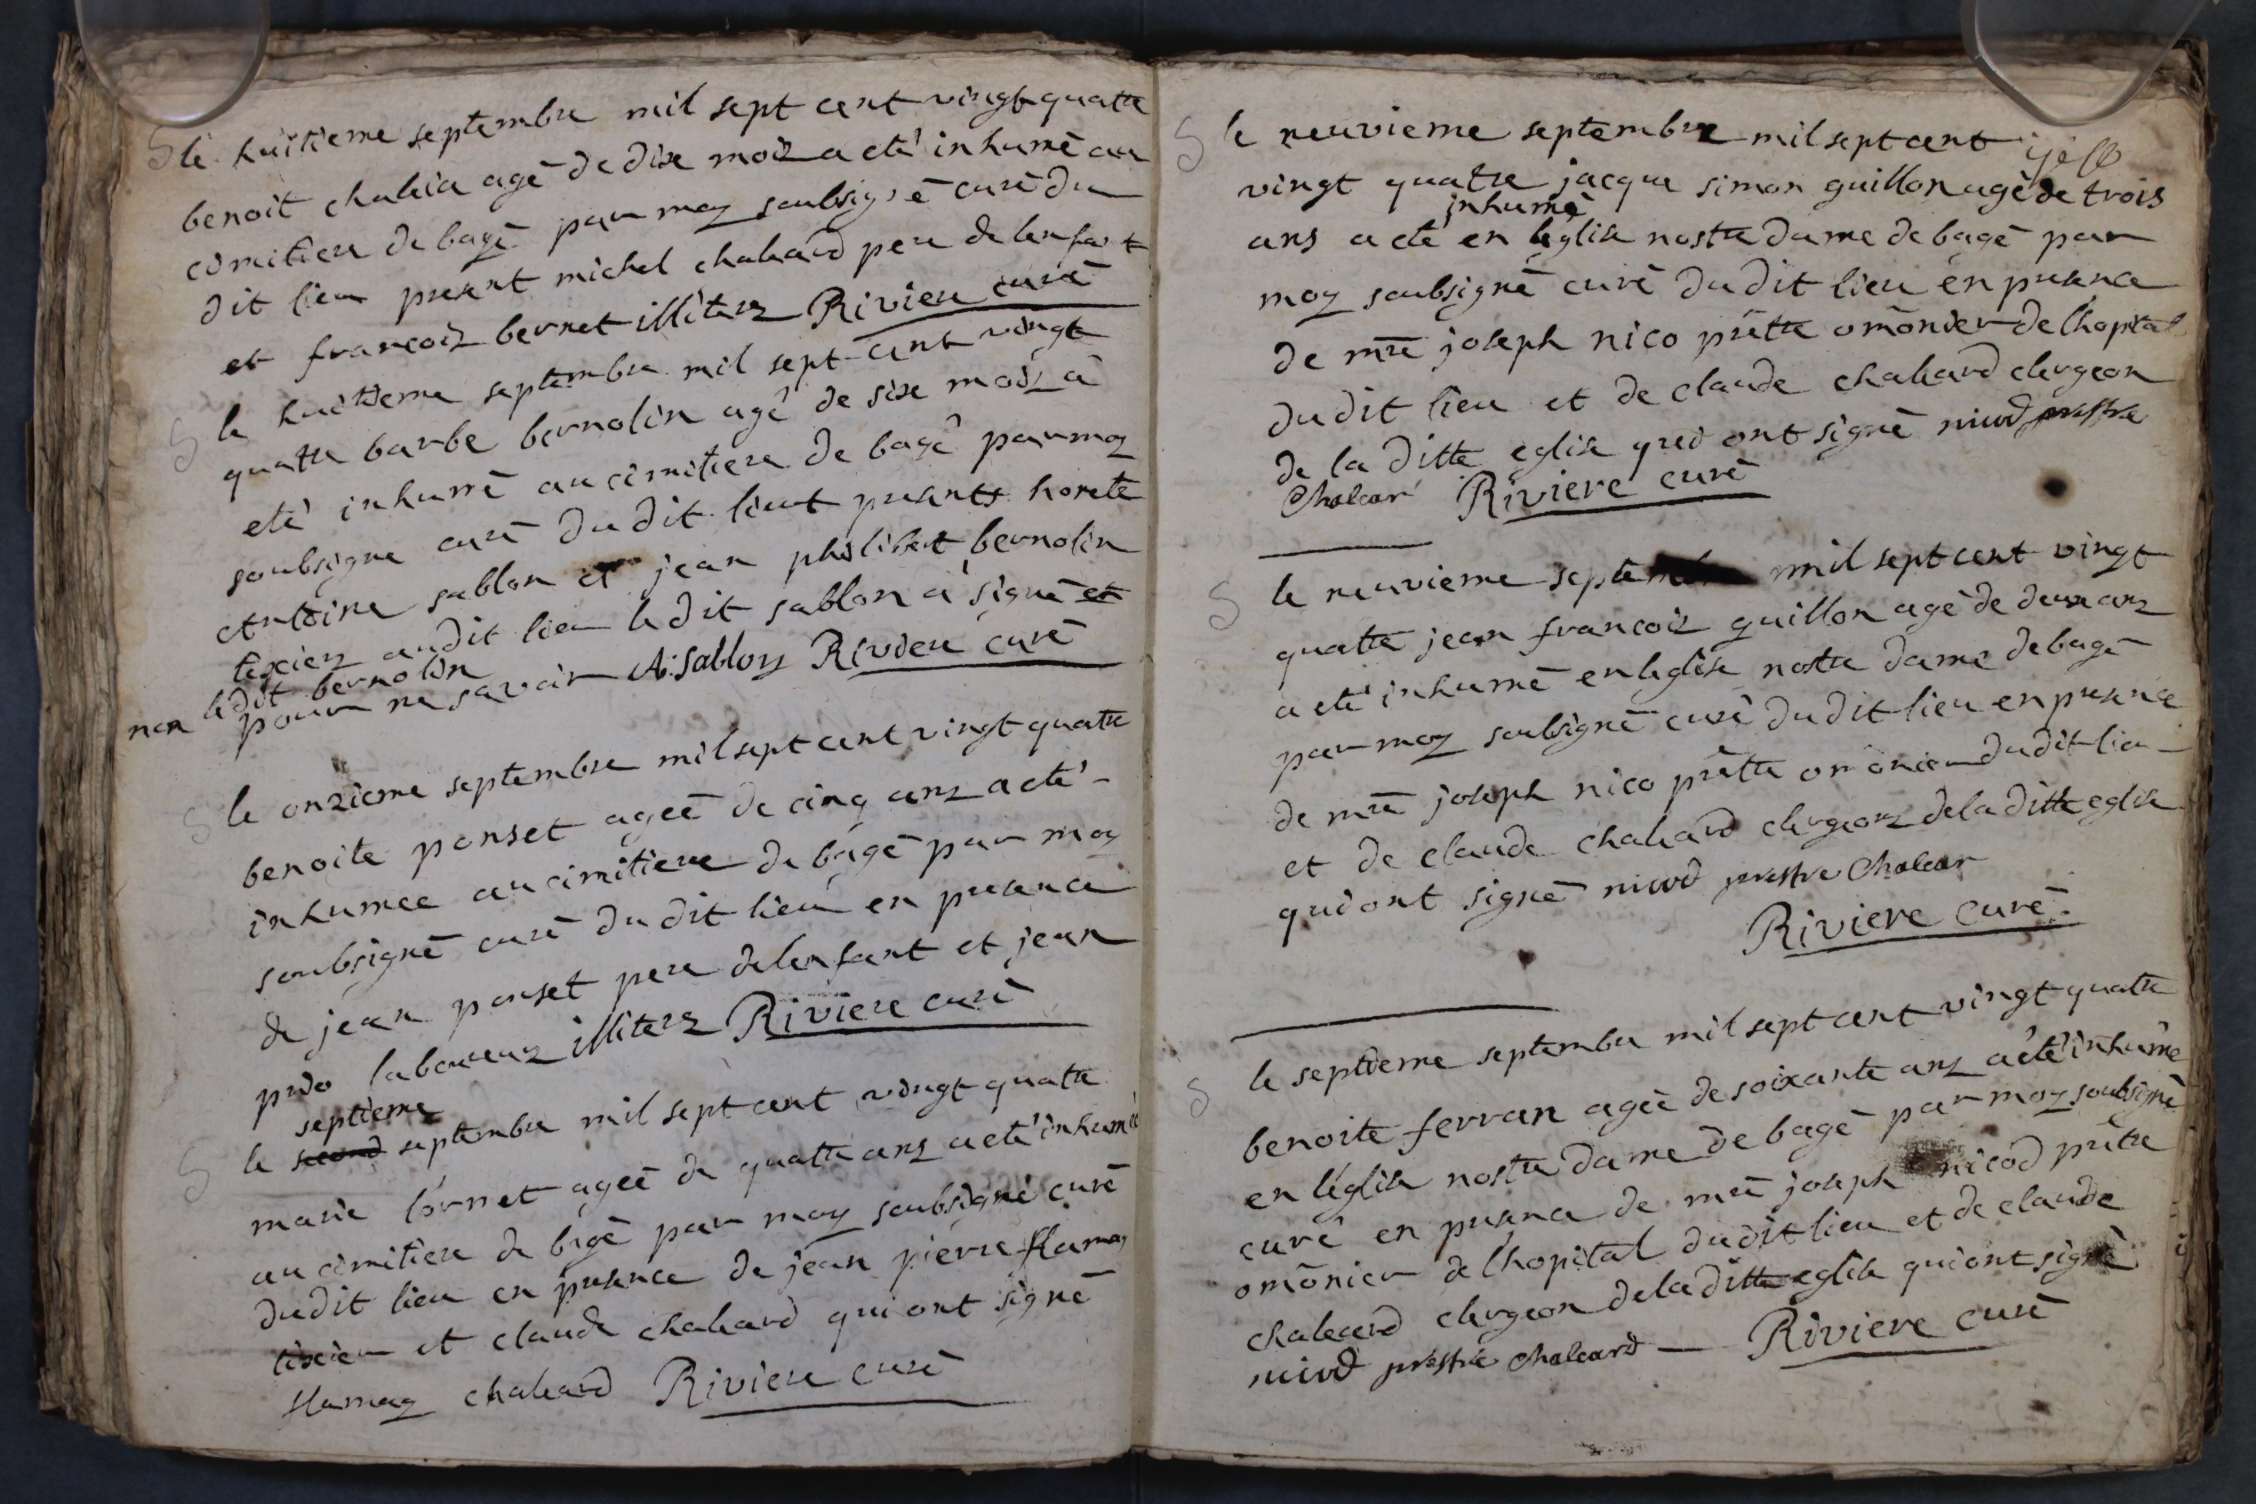 S le huitieme septembre mil sept cent vingt quatre
benoit chaleia agé de dix mois a eté inhumé au
cimitiere de bagé par moy soubsigné curé du
dit lieu present michel chaleard pere de lenfant
et francois bernet illiterz Riviere curé
S le huitieme septembre mil sept cent vingt
quatre barbe bernolin agé de six mois a
eté inhumé au cimitiere de bagé par moy
soubsigne curé du dit lieu et presents honete
antoine sablon et jean philibert bernolin
texierz au dit lieu le dit sablon a signé et
non le dit bernolin
pour ne savoir A. Sablon Riviere curé
S le onzieme septembre mil sept cent vingt quatre
benoite ponset ageé de cinq ans a eté
inhumee au cimitiere de bagé par moy
soubsigné curé du dit lieu en presence
de jean ponset pere de lenfant et jean
prio laboureurz illiterz Riviere curé
septieme
S le second septembre mil sept cent vingt quatre
marie lornet ageé de quatre ans a eté inhumeé
au cimitiere de bagé par moy soubsigné curé
du dit lieu en presence de jean pierre flamay
tixier et claude chaleard qui ont signé
flamay chaleard Riviere curé
S le neuvieme septembre mil sept cent
vingt quatre jacque simon guillon agé de trois
inhumé
ans a eté en leglise nostre dame de bagé par
moy soubsigné curé du dit lieu en presence
de mre joseph nico prêtre omônier de lhopital
du dit lieu et de claude chaleard clergeon
de la ditte eglise qui ont signé nicod prestre
Chalear Riviere curé
S le neuvieme septembre mil sept cent vingt
quatre jean francois guillon agé de deux ans
a eté inhumé en leglise nostre dame de bagé
par moy soubsigné curé du dit lieu en presence
de mre joseph nico prêtre omônier du dit lieu
et de claude chaleard clergeon de la ditte eglise
qui ont signé nicod prestre Chalear
Riviere curé
S le septieme septembre mil sept cent vingt quatre
benoite ferran ageé de soixante ans a eté inhumé
en léglise nostre dame de bagé par moy soubsigné
curé en presence de mre joseph nicod prêtre
omônier de lhopital du dit lieu et de claude
chaleard clergeon de la ditte eglise qui ont signé
nicod prestre Chaleard Riviere curé